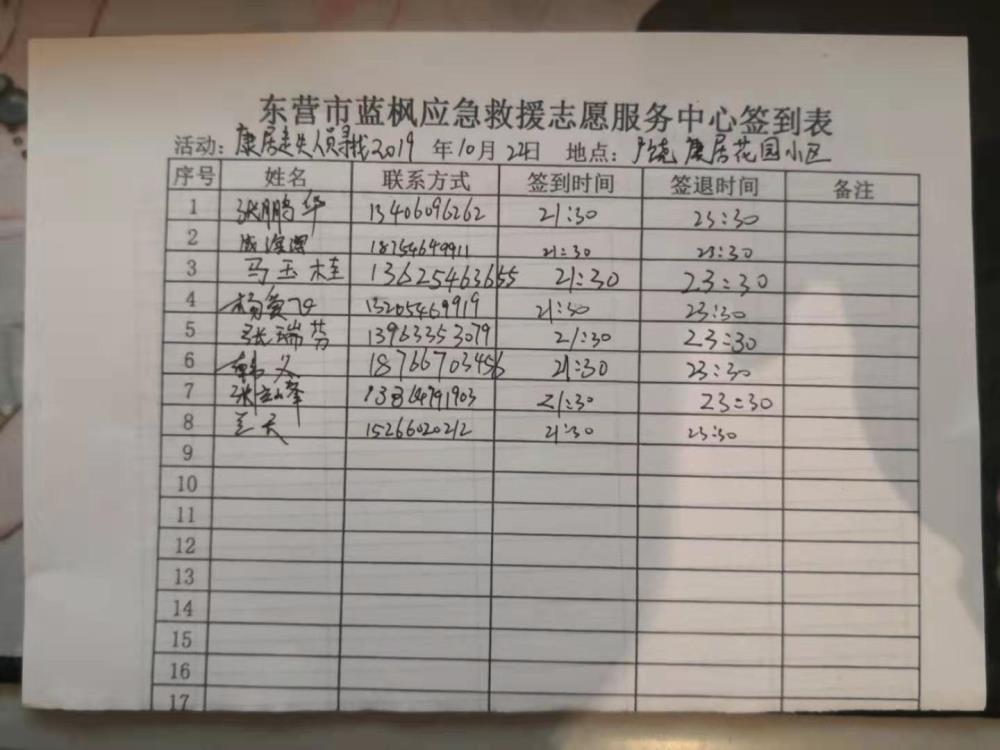 东营市蓝枫应急救援志愿服务中心签到表
活动：康居走失人员寻找2019 年10月22日 地点：广饶康居花园小区
序号 姓名 联系方式 签到时间 签退时间 备注
1 张鹏华 13406096262 21:30 23:30
2 18754649911 21:30 23:30
3 马玉桂 13625463655 21:30 23:30
4 杨爱 13205469919 21:30 23:30
5 张瑞芬 13963353079 21:30 23:30
6 韩义 18766703456 21:30 23:30
7 张 13864791903 21:30 23:30
8 15266020212 21:30 23:30
9
10
11
12
13
14
15
16
17